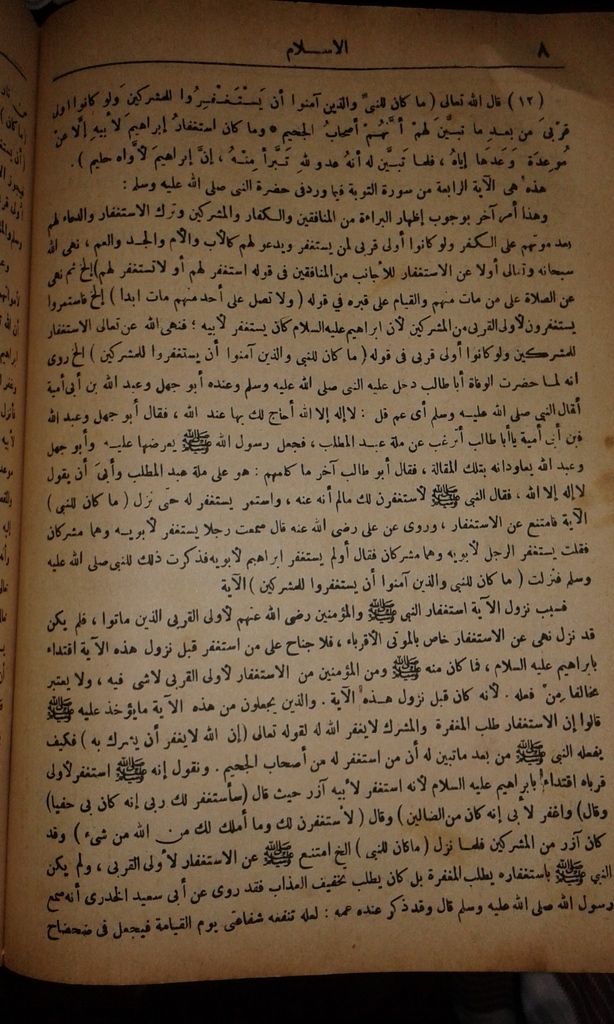 ٨
الاسلام
(١٢) قال الله تعالى ( ما كان للنبيّ والذين آمنوا أن يَسْتَغْفِرُوا للمشركين وَلو كانوا أولى
قربى مِن بعدِ ما تبيَّنَ لهمْ أنَّهُمْ أصحابُ الجحيم * وما كان استغفارُ إبراهيمَ لأبيهِ إلَّا عنْ
مُوعِدَة وَعَدَها إياهُ ، فلما تَبيَّن له أنهُ عدو للهِ تَبَرأ مِنْهُ ، إنَّ إبراهيمَ لأوَّاه حليم ) .
هذه هى الآية الرابعة من سورة التوبة فيما ورد فى حضرة النبى صلى الله عليه وسلم :
وهذا أمر آخر بوجوب إظهار البراءة من المنافقين والكفار والمشركين وترك الاستغفار والدعاء لهم
بعد موتهم على الكفر ولو كانوا أولى قربى لمن يستغفر ويدعو لهم كالأب والأم والجد والعم ، نهى الله
سبحانه وتعالى أولا عن الاستغفار للأجانب من المنافقين فى قوله استغفر لهم أو لا تستغفر لهم) إلخ ثم نهى
عن الصلاة على من مات منهم والقيام على قبره في قوله ( ولا تصل على أحد منهم مات ابدا ) إلخ فاستمروا
يستغفرون لأولى القربى من المشركين لأن ابراهيم عليه السلام كان يستغفر لأبيه ؛ فنهى الله عن تعالى الاستغفار
للمشركين ولو كانوا أولى قربى فى قوله ( ما كان للنبى والذين آمنوا أن يستغفروا للمشركين ) إلخ روى
انه لما حضرت الوفاة أبا طالب دخل عليه النبى صلى الله عليه وسلم وعنده أبو جهل وعبد الله بن أبى أمية
أقال النبى صلى الله عليه وسلم أى عم قل : لا إله إلا الله أحاج لك بها عند الله ، فقال أبو جهل وعبد الله
فبن أبى أمية يا أبا طالب أترغب عن ملة عبد المطلب ، فجعل رسول الله ﷺ يعرضها عليه وأبو جهل
وعبد الله يعاودانه بتلك المقالة ، فقال أبو طالب آخر ما كلمهم : هو على ملة عبد المطلب وأبى أن يقول
لا إله إلا الله ، فقال النبى ﷺ لأستغفرن لك مالم أنه عنه ، واستمر يستغفر له حتى نزل ( ما كان للنبى )
الآية فامتنع عن الاستغفار ، وروى عن على رضى الله عنه قال سمعت رجلا يستغفر لأبويه وهما مشركان
فقلت يستغفر الرجل لأبويه وهما مشركان فقال أولم يستغفر ابراهيم لأبويه فذكرت ذلك للنبى صلى الله عليه
وسلم فنزلت ( ما كان للنبى والذين آمنوا أن يستغفروا للمشركين ) الآية
فسبب نزول الآية استغفار النبى ﷺ والمؤمنين رضى الله عنهم لأولى القربى الذين ماتوا ، فلم يكن
قد نزل نهى عن الاستغفار خاص بالموتى الأقرباء ، فلا جناح على من استغفر قبل نزول هذه الآية اقتداء
بابراهيم عليه السلام ، فما كان منه ﷺ ومن المؤمنين من الاستغفار لأولى القربى لاشى فيه ، ولا يعتبر
مخالفا مِنْ فعله . لأنه كان قبل نزول هذه الآية . والذين يجعلون من هذه الآية مايؤخذ عليه ﷺ
قالوا إن الاستغفار طلب المغفرة والمشرك لايغفر الله له لقوله تعالى (إن الله لايغفر أن يشرك به ) فكيف
يفعله النبى ﷺ من بعد ماتبين له أن من استغفر له من أصحاب الجحيم . ونقول إنه ﷺ استغفر لأولى
قرباه اقتداء بابراهيم عليه السلام لأنه استغفر لأبيه آزر حيث قال (سأستغفر لك ربى إنه كان بى حفيا)
وقال) واغفر لأبى إنه كان من الضالين ) وقال ( لأستغفرن لك وما أملك لك من الله من شىء ) وقد
كان آزر من المشركين فلما نزل ( ما كان للنبى ) الخ امتنع ﷺ عن الاستغفار لأولى القربى ، ولم يكن
النبى ﷺ باستغفاره يطلب المغفرة بل كان يطلب تخفيف العذاب فقد روى عن أبى سعيد الخدرى أنه سمع
رسول الله صلى الله عليه وسلم قال وقد ذكر عنده عمه : لعله تنفعه شفاعتى يوم القيامة فيجعل فى ضحضاح